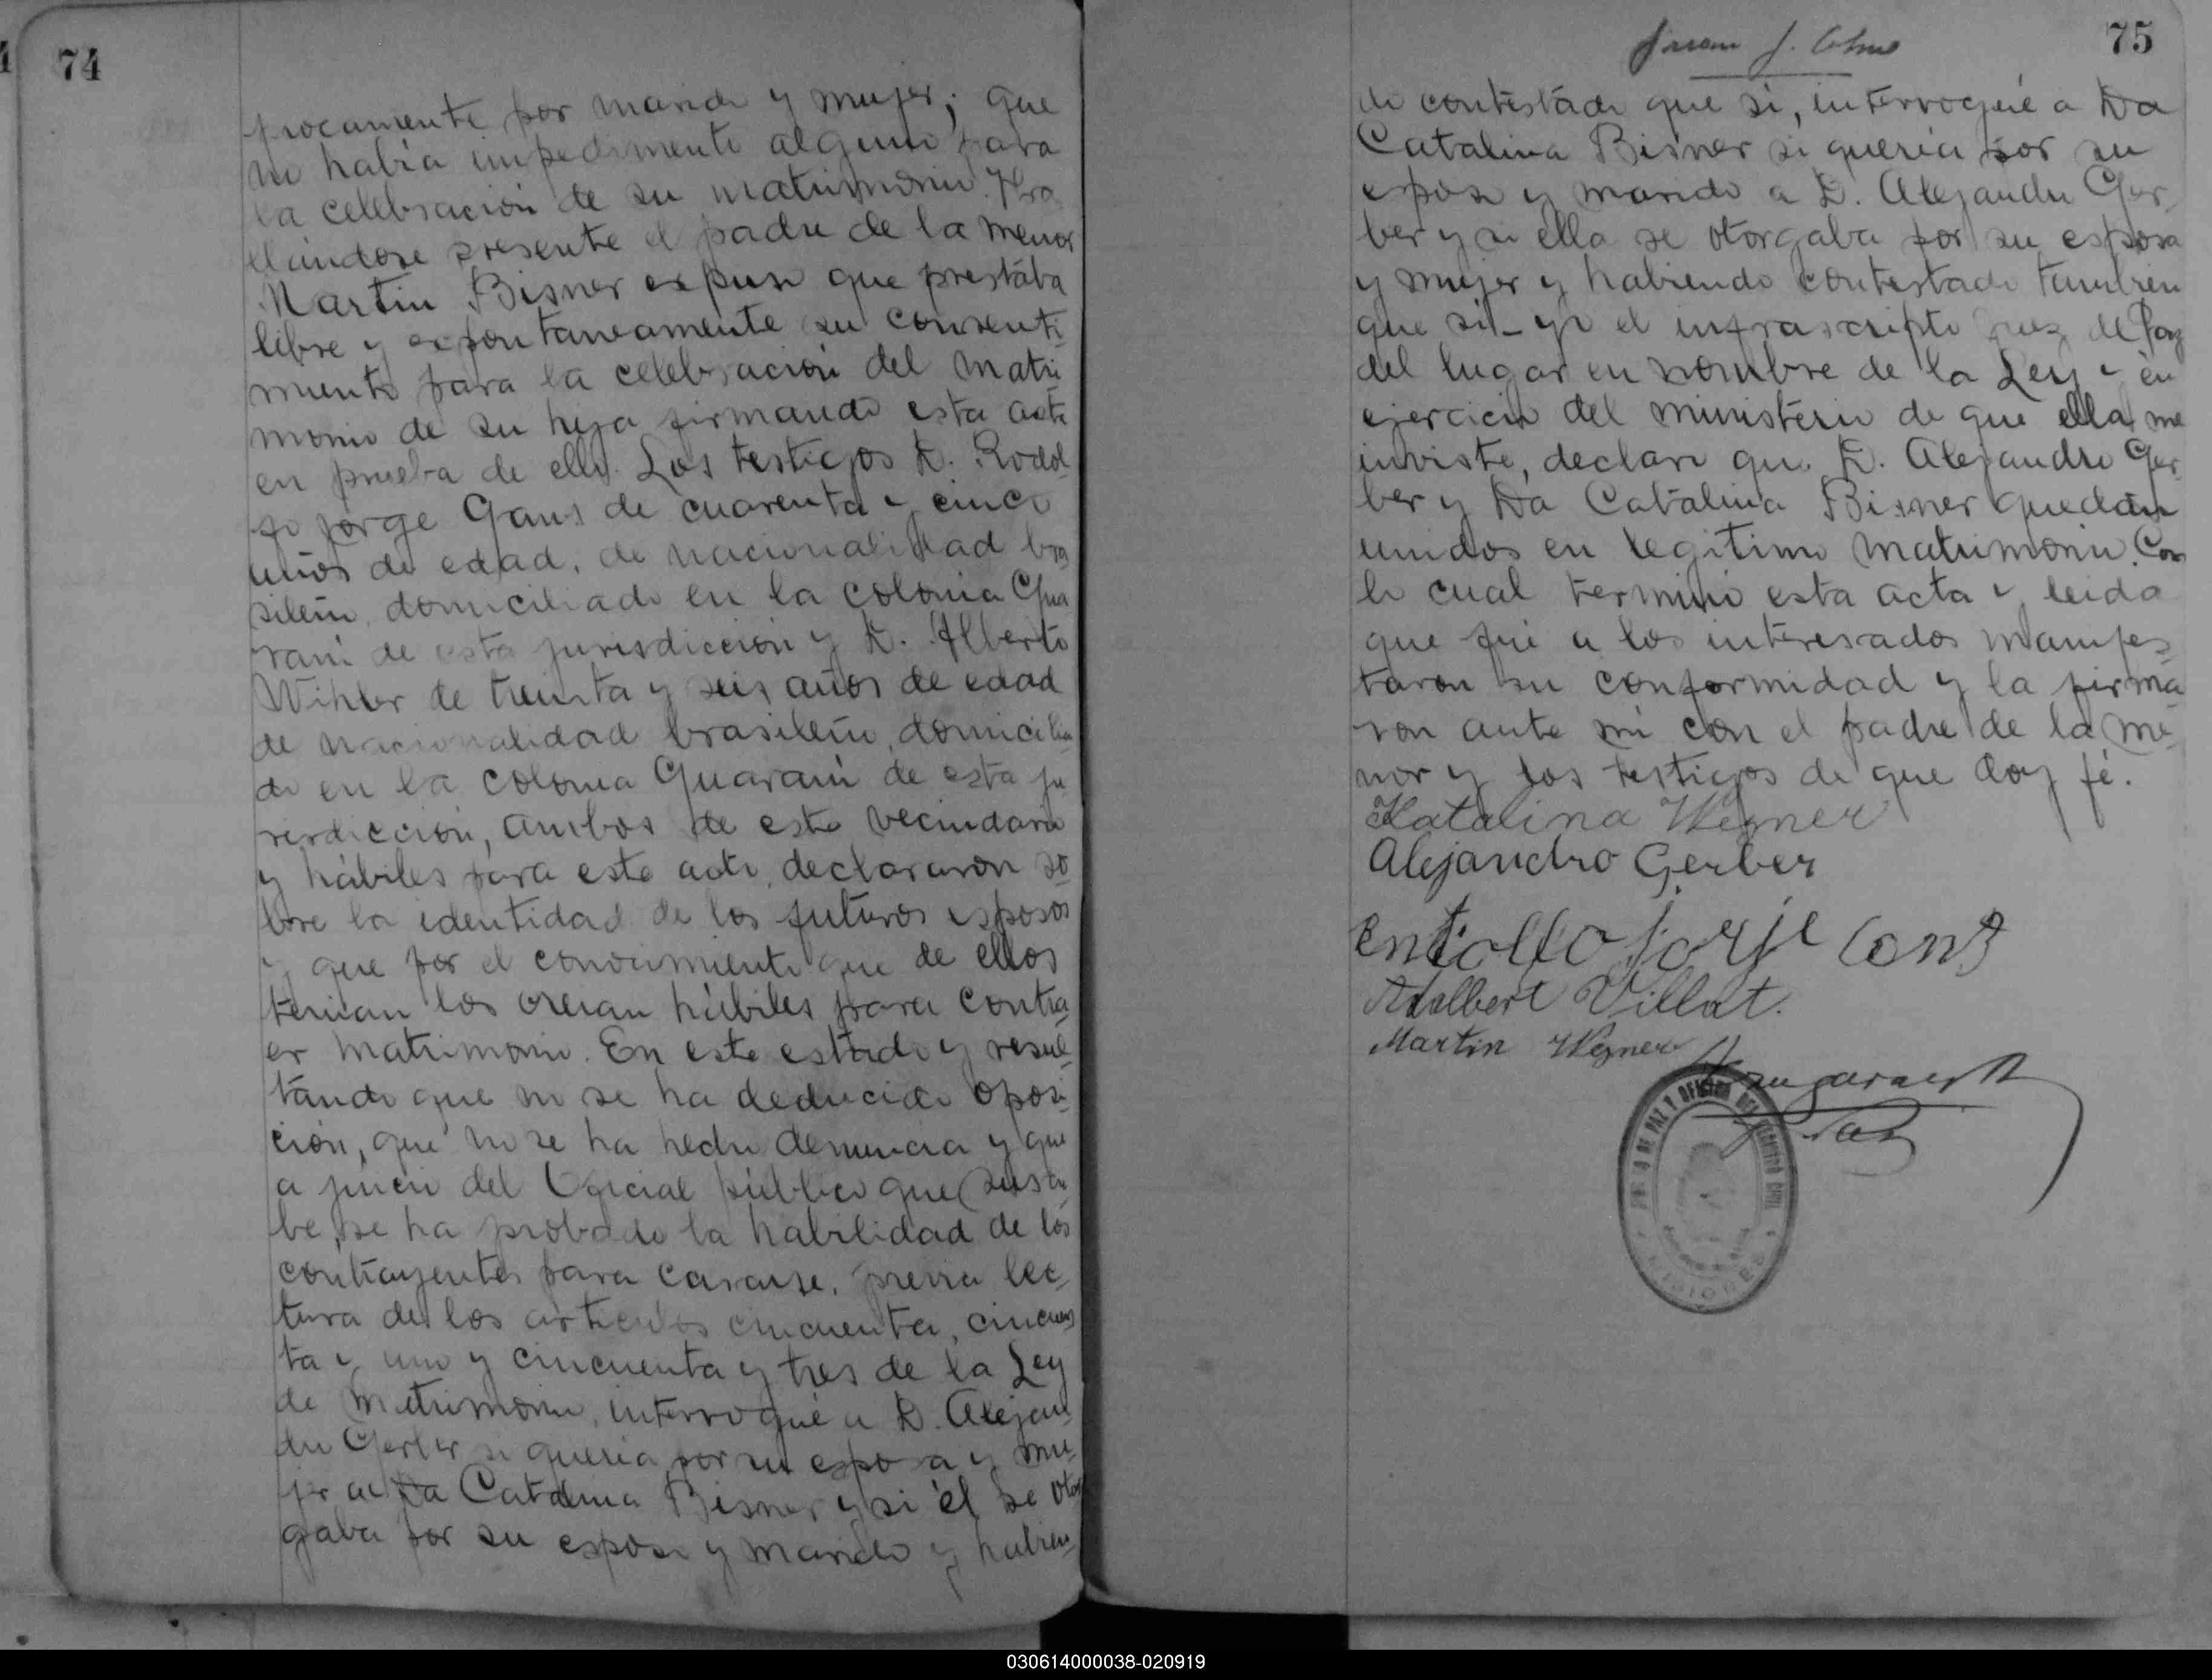 74
procamente por marido y mujer; que
no había impedimento alguno para
la celebración de su matrimonio. Ha
llandose presente el padre de la menor
Martin Bisner expuso que prestaba
libre y expontaneamente su consenti
miento para la celebración del matri
monio de su hija firmando esta acta
en prueba de ello. Los testigos D. Rodol
fo Jorge Gans de cuarenta y cinco
años de edad, de nacionalidad bra
sileño, domiciliado en la colonia Gua
raní de esta jurisdicción y D. Alberto
Wihler de treinta y seis años de edad
de nacionalidad brasileño, domicilia
do en la colonia Guaraní de esta ju
risdicción, ambos de este vecindario
y hábiles para este acto, declararon so
bre la identidad de los futuros esposos
y que por el conocimiento que de ellos
tenian los creian hábiles para contra
er matrimonio. En este estado y resul
tando que no se ha deducido oposi
ción, que no se ha hecho denuncia y que
a juicio del Oficial público que suscri
be, se ha probado la habilidad de los
contrayentes para casarse, previa lec
tura de los artículos cincuenta, cincuen
ta y uno y cincuenta y tres de la Ley
de Matrimonio, interrogué a D. Alejan
dro Gerber si quería por su esposa y mu
jer a Da Catalina Bisner y si él se otor
gaba por su esposo y marido y habien
75
do contestado que sí, interrogué a Da
Catalina Bisner si quería por su
esposo y marido a D. Alejandro Ger
ber y si ella se otorgaba por su esposa
y mujer y habiendo contestado tambien
que si- yo el infrascripto Juez de Paz
del lugar en nombre de la Ley y en
ejercicio del ministerio de que ella me
inviste, declaro que D. Alejandro Ger
ber y Da Catalina Bisner quedan
unidos en legitimo matrimonio. Con
lo cual terminó esta acta y leida
que fué a los interesados manifes
taron su conformidad y la firma
ron ante mí con el padre de la me
nor y los testigos de que doy fé.
Katalina Wesner
Alejandro Gerber
jorje
Adalbert Villat.
Martin Wesner
DE PAZ Y OFICINA DEL REGISTRO CIVIL
MISIONES
030614000038-020919